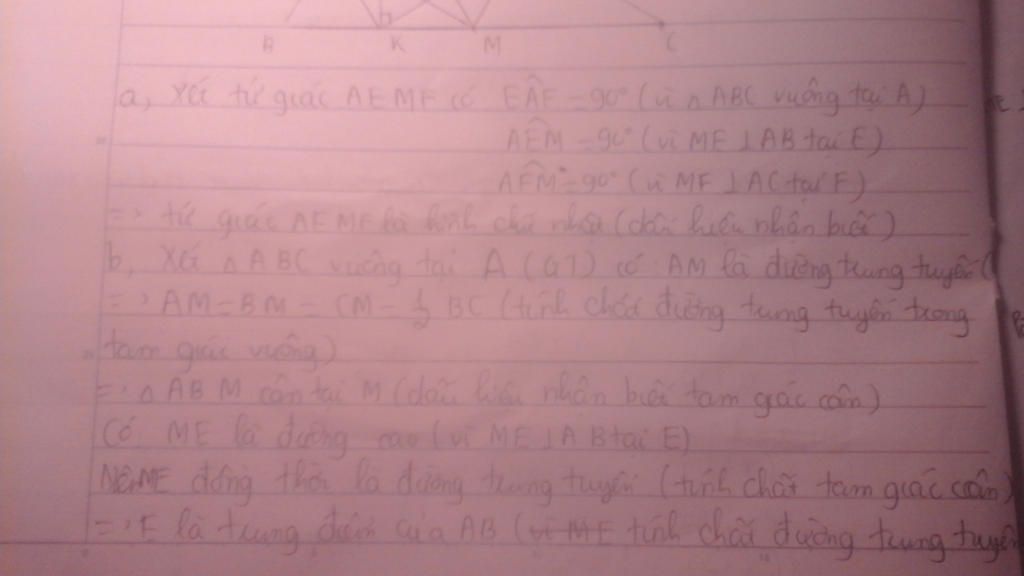 B K M C
a, Xét tứ giác AEMF có EÂF = 90° (vì △ ABC vuông tại A)
AÊM = 90° (vì ME ⊥ AB tại E)
AF̂M = 90° (vì MF ⊥ AC tại F)
=> tứ giác AEMF là hình chữ nhật (dấu hiệu nhận biết)
b, Xét △ ABC vuông tại A (GT) có AM là đường trung tuyến (
=> AM = BM = CM = 1/2 BC (tính chất đường trung tuyến trong
tam giác vuông)
=> △ ABM cân tại M (dấu hiệu nhận biết tam giác cân)
Có ME là đường cao (vì ME ⊥ AB tại E)
Nên ME đồng thời là đường trung tuyến (tính chất tam giác cân)
=> E là trung điểm của AB (vì ME tính chất đường trung tuyến